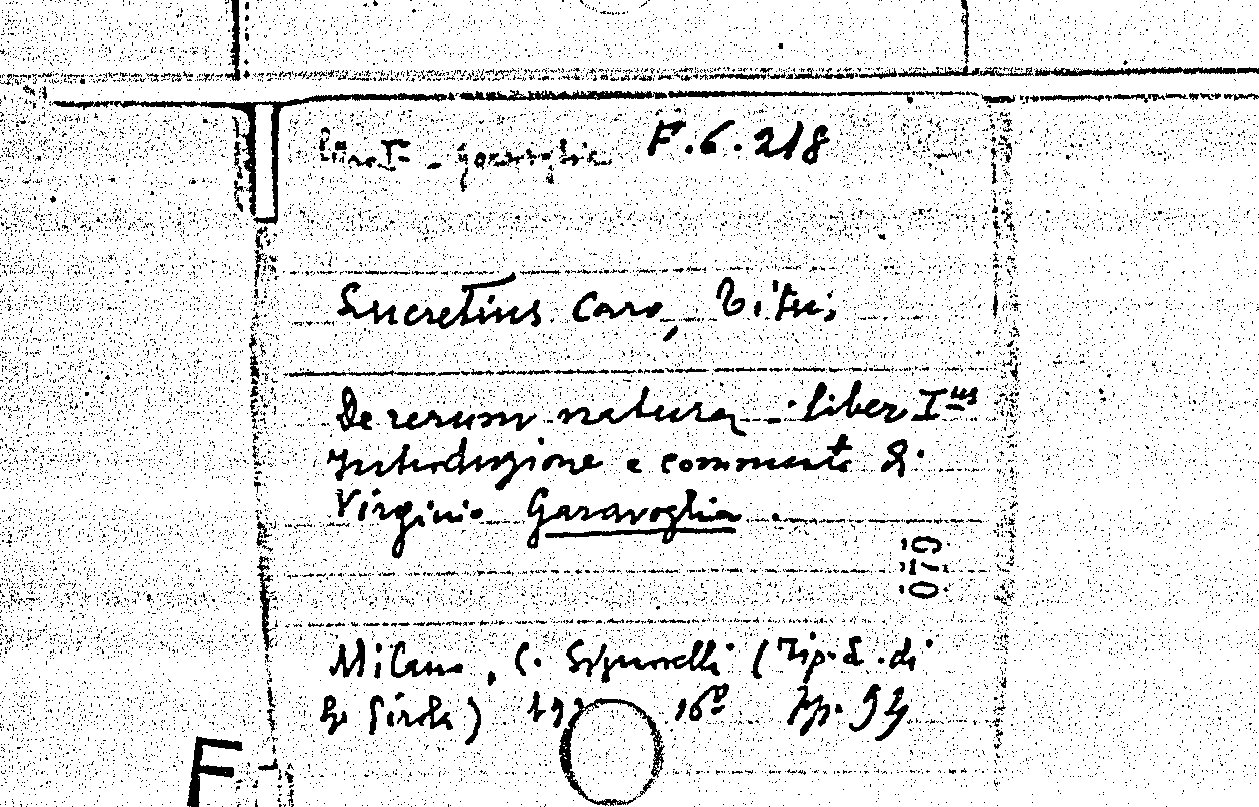 F.6.218
Lucretius Caro, Titus;
De rerum natura - liber I us
Introduzione e commento di
Virginio Garavoglia.
079
Milano, C. Signorelli (Tip. E. di
G. Sirola) 16°
F